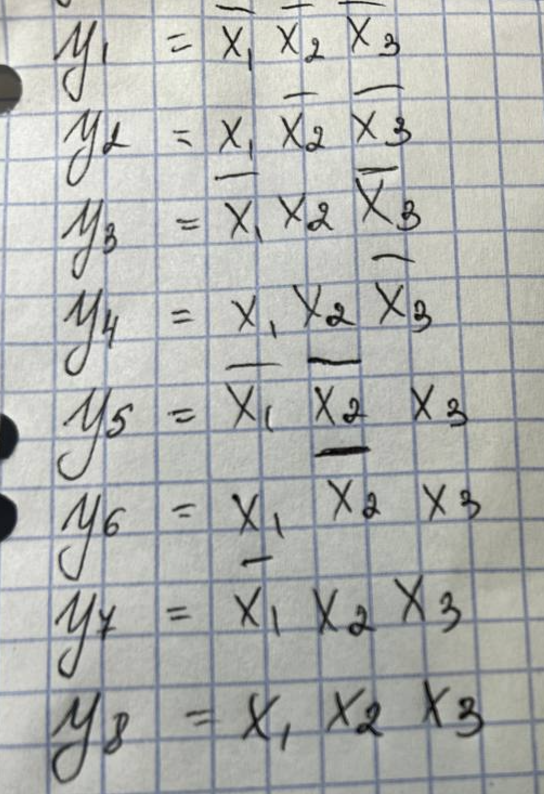 y₁ = x̅₁ x̅₂ x̅₃
y₂ = x₁ x̅₂ x̅₃
y₃ = x̅₁ x₂ x̅₃
y₄ = x₁ x₂ x̅₃
y₅ = x̅₁ x̅₂ x₃
y₆ = x₁ x̅₂ x₃
y₇ = x̅₁ x₂ x₃
y₈ = x₁ x₂ x₃